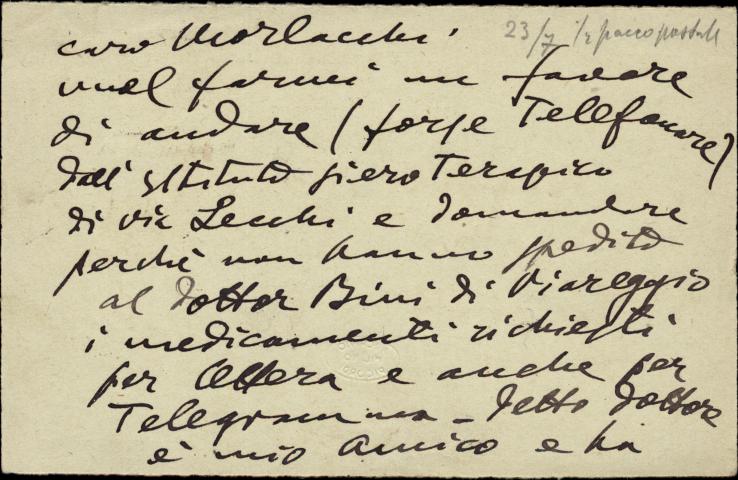 23/7 ½ pacco postale
caro Morlacchi
vuol farmi un favore
di andare (forse Telefonare)
dall'Istituto sieroterapico
di via Lecchi e domandare
perchè non hanno spedito
al dottor Bini di Viareggio
i medicamenti richiesti
per lettera e anche per
Telegramma - detto dottore
è mio amico e ha